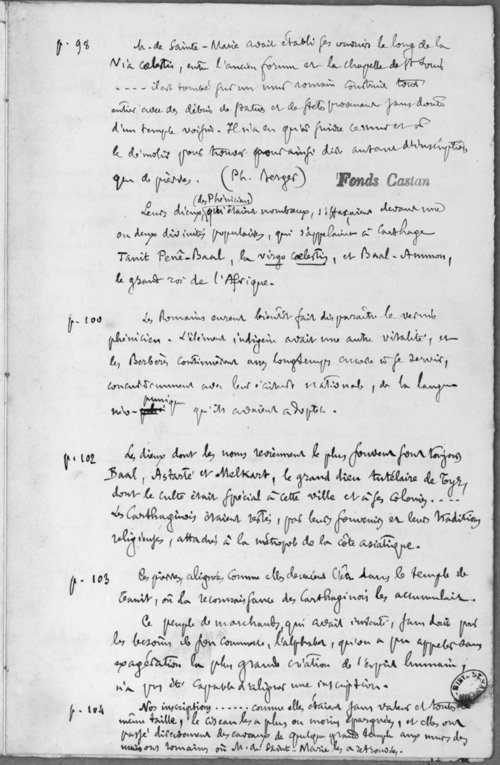 p. 98 M. de Sainte-Marie avait établi ses ouvriers le long de la
Via cœlestis, entre l'ancien forum et la chapelle de St Louis
.... il est tombé sur un mur romain construit tout
entier avec des débris de statues et de stèles provenant sans doute
d'un temple voisin. Il n'a eu qu'à suivre ce mur et à
le démolir pour trouver pour ainsi dire autant d'inscriptions
que de pierres. (Ph. Berger)
Fonds Castan
(des Phéniciens)
Leurs dieux, qui étaient nombreux, s'effaçaient devant une
ou deux divinités populaires, qui s'appelaient à Carthage
Tanit Penê-Baal, la virgo cœlestis, et Baal-Ammon,
le grand roi de l'Afrique.
p. 100 Les Romains eurent bientôt fait disparaître le vernis
phénicien. L'élément indigène avait une autre vitalité, et
les Berbères continuèrent assez longtemps encore à se servir,
concurremment avec leur écriture nationale, de la langue
néo-punique qu'ils avaient adoptée.
p. 102 Les dieux dont les noms reviennent le plus souvent sont toujours
Baal, Astarté et Melkart, le grand dieu tutélaire de Tyr,
dont le culte était spécial à cette ville et à ses colonies....
Les Carthaginois étaient restés, par leurs souvenirs et leurs traditions
religieuses, attachés à la métropole de la côte asiatique.
p. 103 Ces pierres, alignées comme elles devaient l'être dans le temple de
Tanit, où la reconnaissance des Carthaginois les accumulait.
Ce peuple de marchands, qui avait inventé, sans doute pour
les besoins de son commerce, l'alphabet, qu'on a pu appeler sans
exagération la plus grande création de l'esprit humain,
n'a pas été capable d'aligner une inscription.
p. 104 Nos inscriptions ...... comme elles étaient sans valeur et toutes de
même taille, le ciseau les a plus ou moins épargnées, et elles ont
passé directement des caveaux de quelque grand temple aux murs des
maisons romaines où M. de Sainte-Marie les a retrouvées.